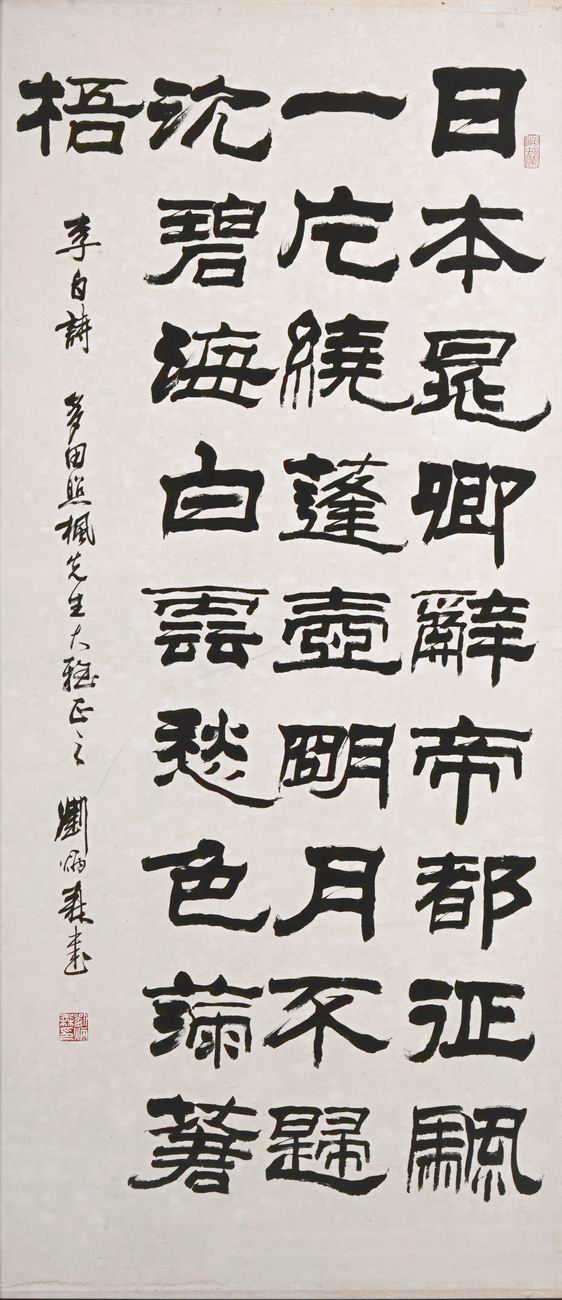 日本晁卿辭帝都征颿
一片繞蓬壺明月不歸
沈碧海白雲愁色滿蒼
梧
李白詩 多田照楓先生大雅正之 劉炳森書